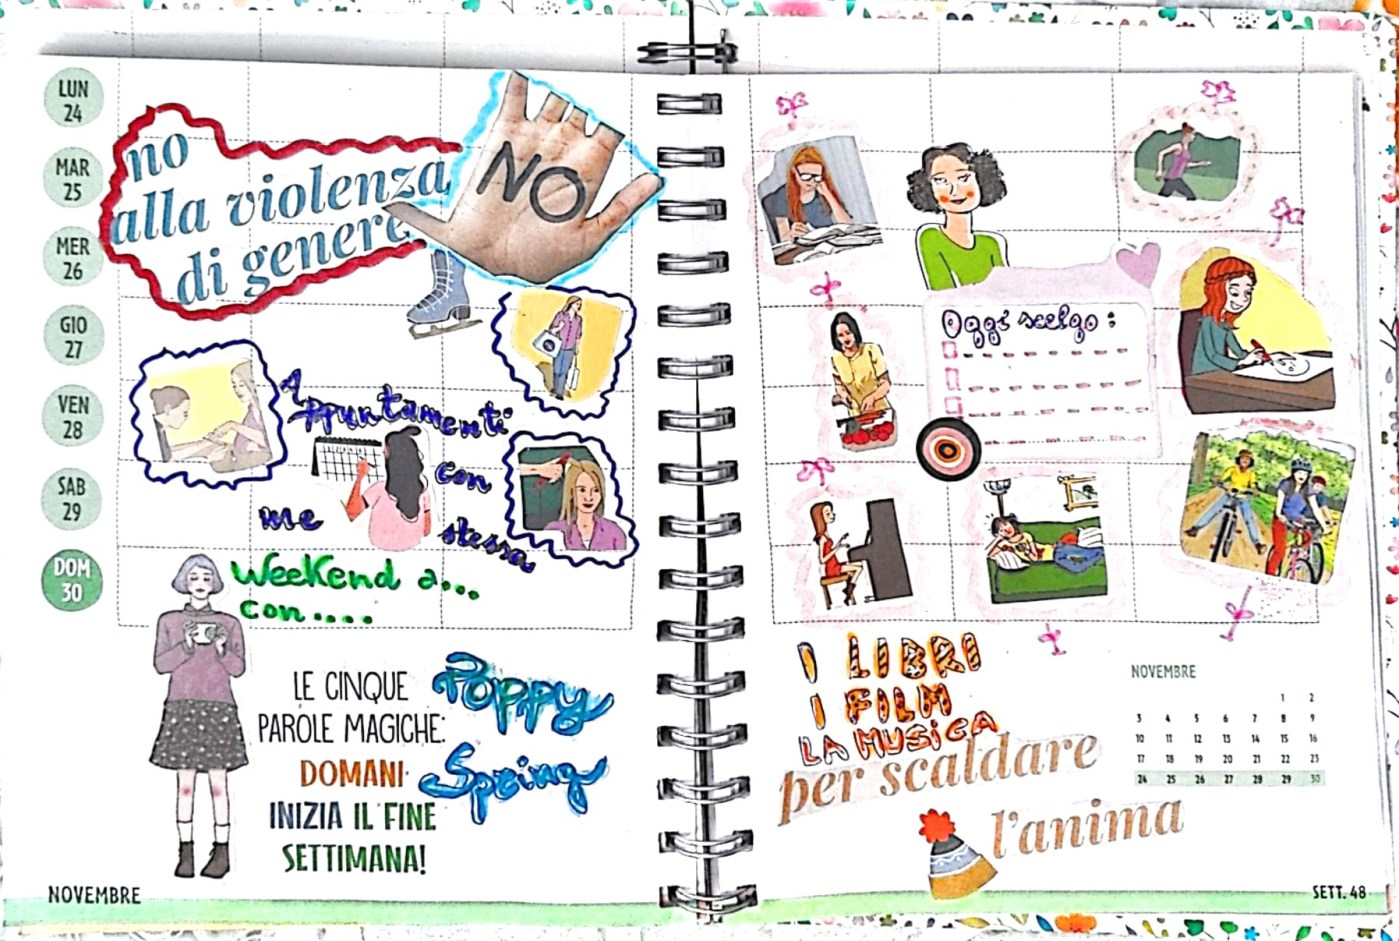 LUN
24
MAR
25
MER
26
GIO
27
VEN
28
SAB
29
DOM
30
no
alla violenza
di genere
NO
Appuntamenti
con
me stessa
Weekend a...
con....
LE CINQUE
PAROLE MAGICHE:
DOMANI
INIZIA IL FINE
SETTIMANA!
Poppy
Spring
NOVEMBRE
Oggi scelgo:
I LIBRI
I FILM
LA MUSICA
per scaldare
l'anima
NOVEMBRE
1 2
3 4 5 6 7 8 9
10 11 12 13 14 15 16
17 18 19 20 21 22 23
24 25 26 27 28 29 30
SETT. 48